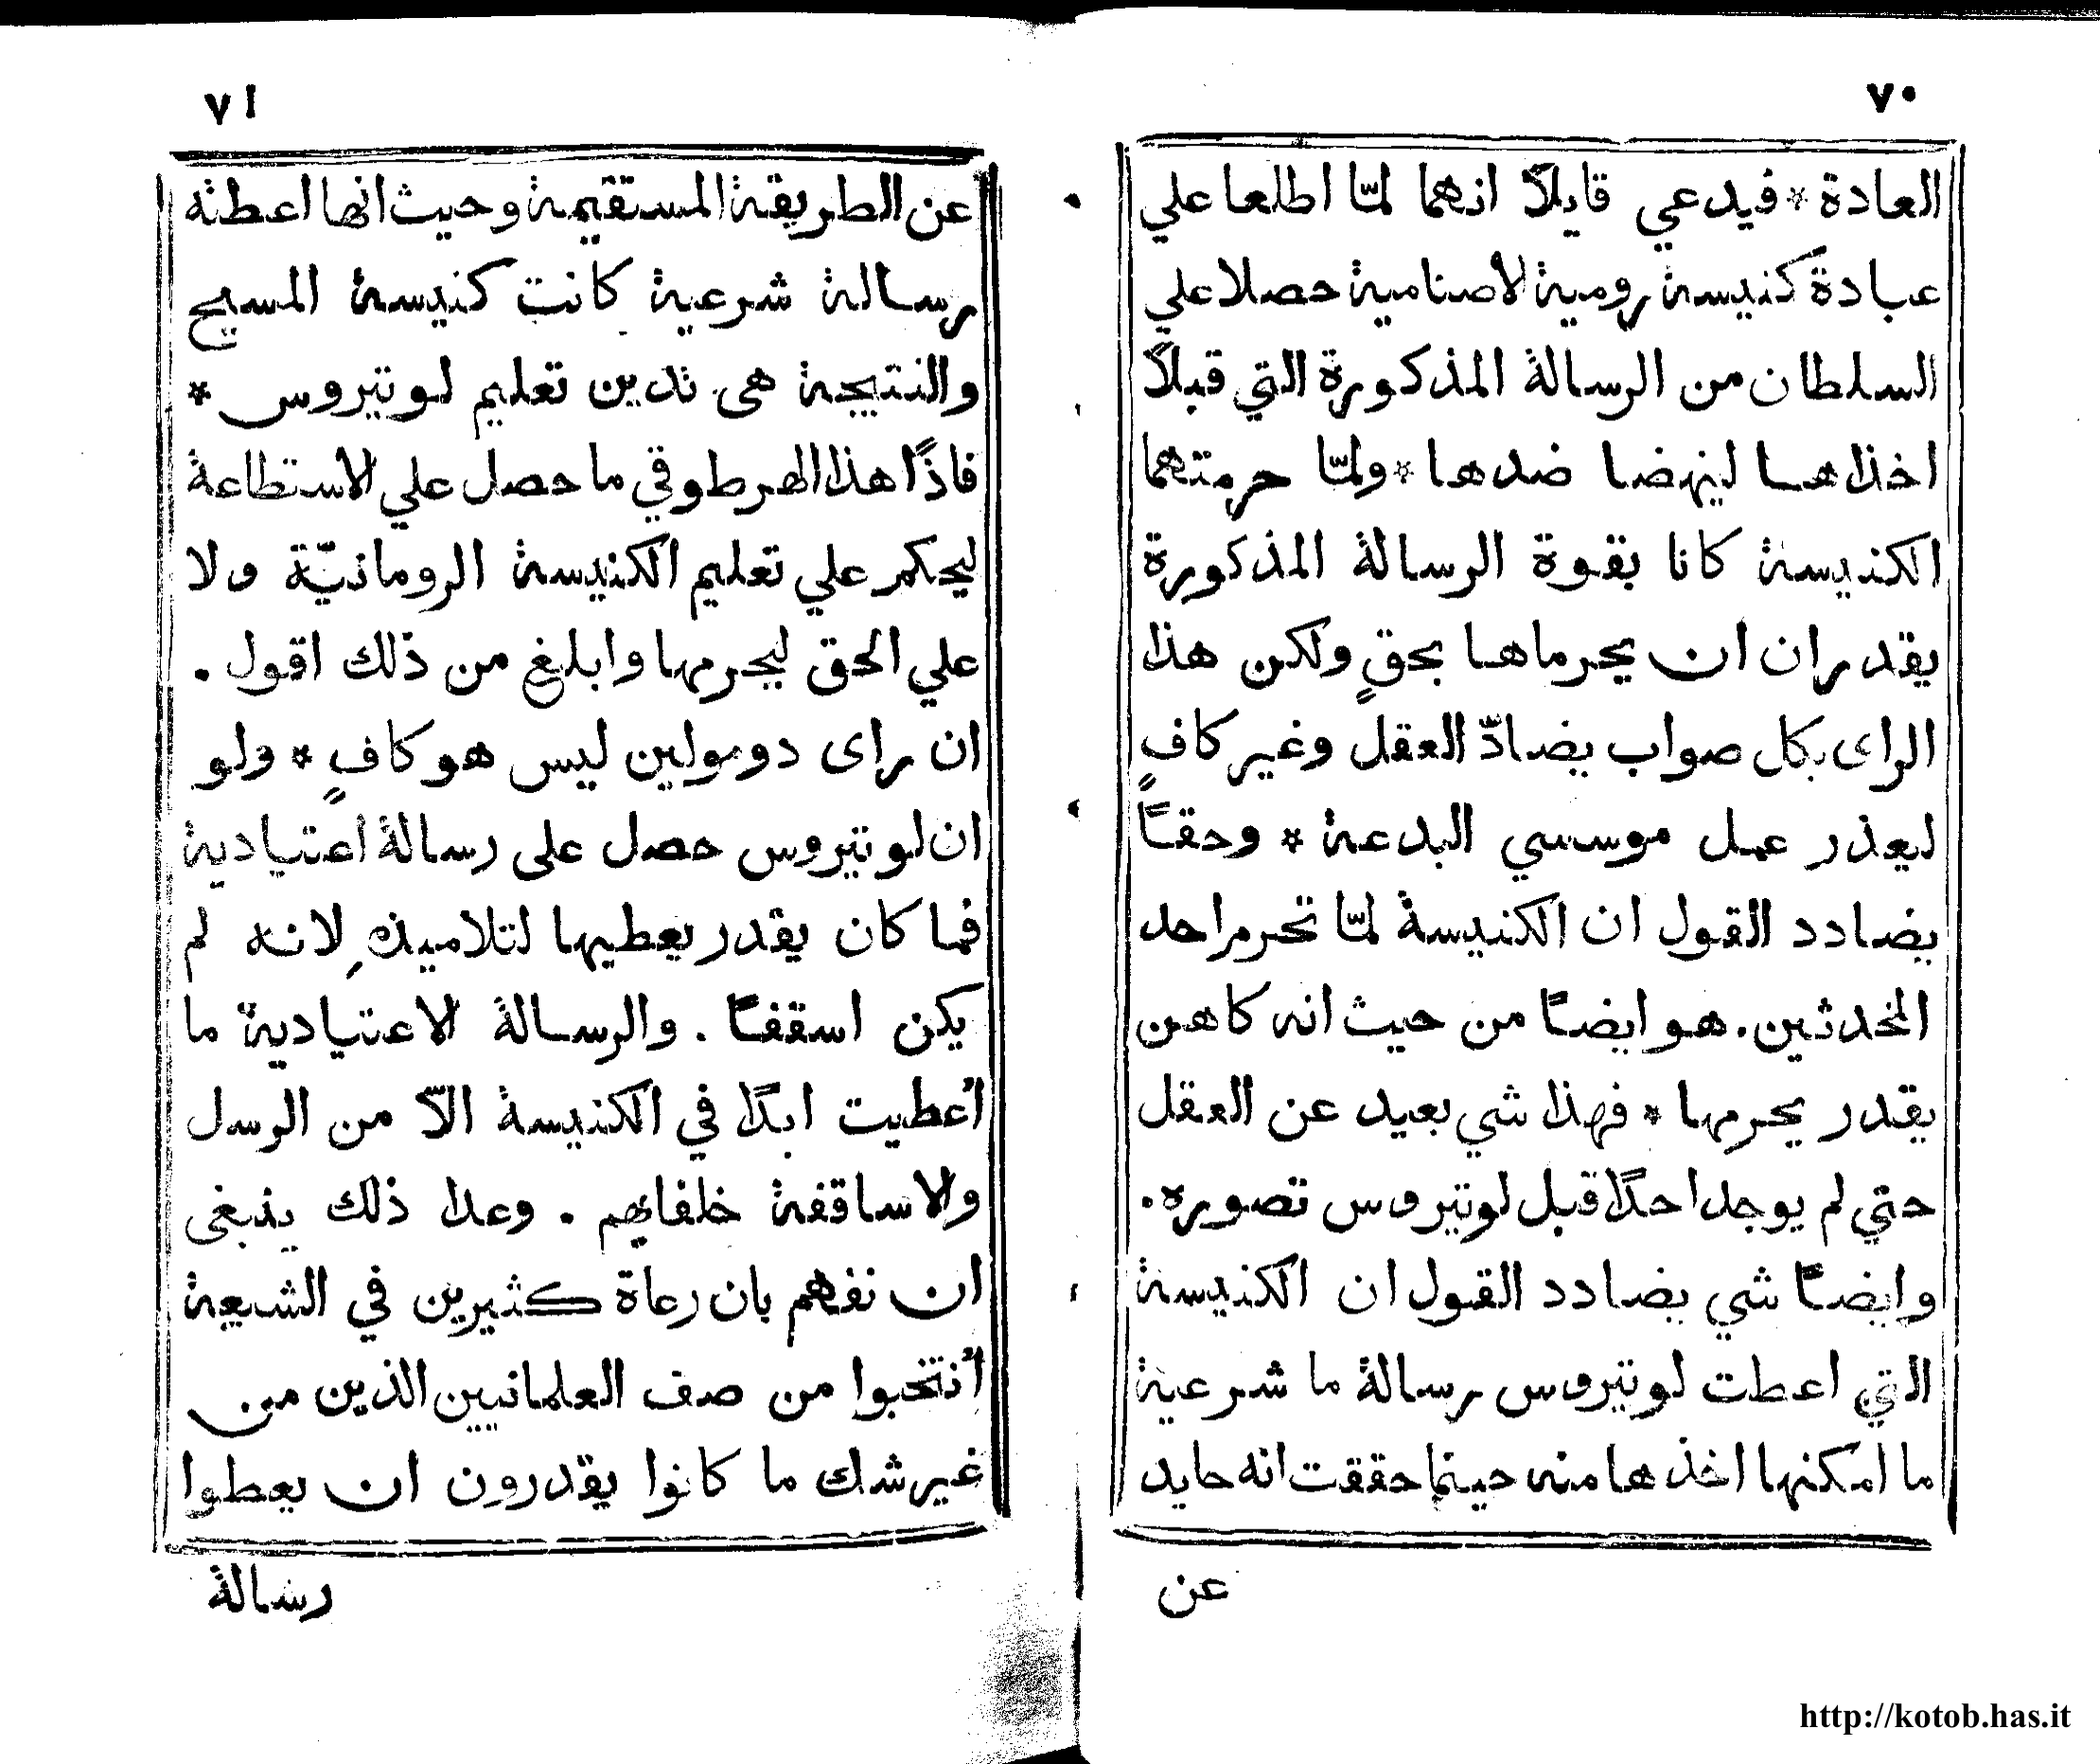 ٧٠
العادة * فيدعي قايلاً انهما لمّا اطلعا علي
عبادة كنيسة رومية الاصنامية حصلا علي
السلطان من الرسالة المذكورة التي قبلاً
اخذاها لينهضا ضدها * ولمّا حرمتهما
الكنيسة كانا بقوة الرسالة المذكورة
يقدران ان يحرماها بحقٍ ولكن هذا
الراى بكل صواب يضادّ العقل وغير كافٍ
ليعذر عمل موسسي البدعة * وحقاً
يضادد القول ان الكنيسة لمّا تحرم احد
المخدثين. هو ايضاً من حيث انه كاهن
يقدر يحرمها * فهذا شي بعيد عن العقل
حتي لم يوجد احداً قبل لوتيروس تصوره.
وايضاً شي يضادد القول ان الكنيسة
التي اعطت لوتيروس رسالة ما شرعية
ما امكنها اخذها منه حينما حققت انه حايد
عن
٧١
عن الطريقة المستقيمة وحيث انها اعطته
رسالة شرعية كانت كنيسة المسيح
والنتيجة هى تدين تعليم لوتيروس *
فاذًا هذا الهرطوقي ما حصل علي الاستطاعة
ليحكم علي تعليم الكنيسة الرومانيّة ولا
علي الحق ليحرمها وابلغ من ذلك اقول.
ان راى دومولين ليس هو كافٍ * ولو
ان لوتيروس حصل على رسالة اعتيادية
فما كان يقدر يعطيها لتلاميذه لانه لم
يكن اسقفاً. والرسالة الاعتيادية ما
أعطيت ابدًا في الكنيسة الاّ من الرسل
والاساقفة خلفايهم. وعدا ذلك ينبغى
ان نفهم بان رعاة كثيرين في الشيعة
أنتخبوا من صف العلمانيين الذين من
غير شك ما كانوا يقدرون ان يعطوا
رسالة
http://kotob.has.it